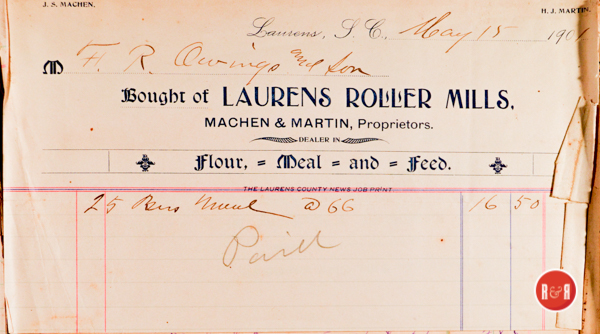 J. S. MACHEN. H. J. MARTIN.
Laurens, S. C. May 15 1901
M F. R. Owings and Son
Bought of LAURENS ROLLER MILLS,
MACHEN & MARTIN, Proprietors.
DEALER IN
Flour, = Meal = and = Feed.
THE LAURENS COUNTY NEWS JOB PRINT
25 Bus Meal @ 66 16 50
Paid
R&R